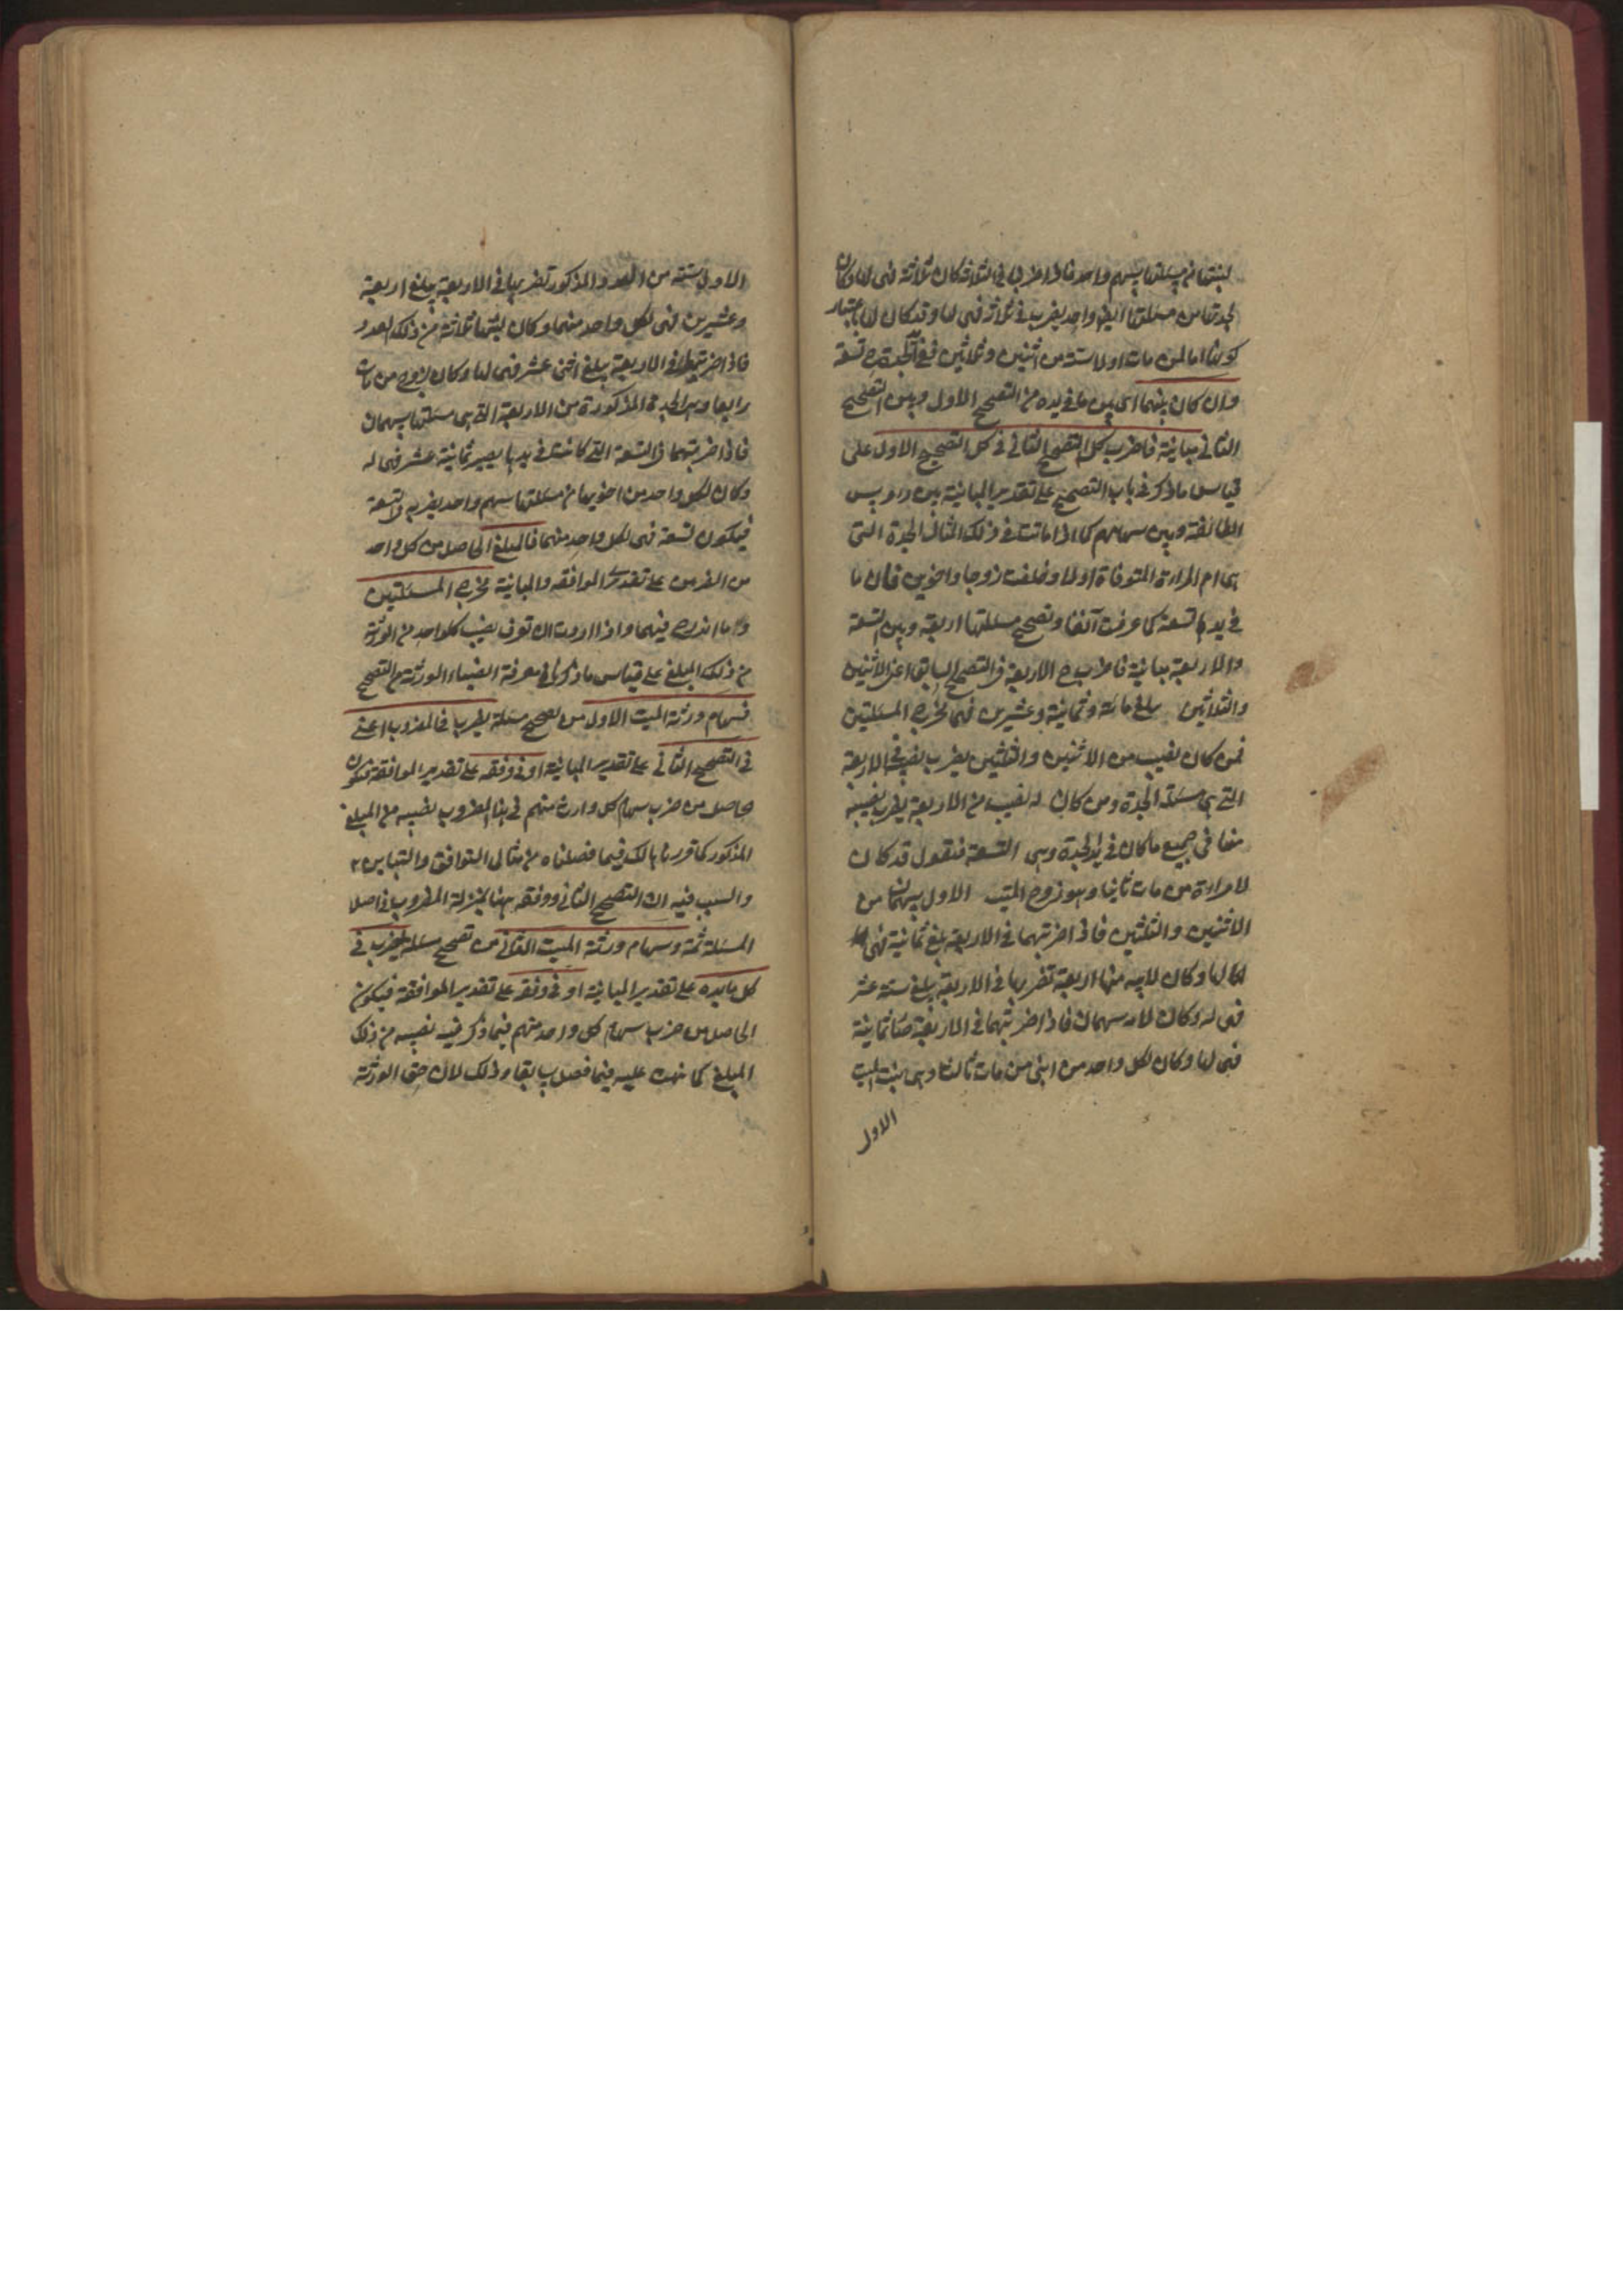 لبنتها من مسئلتها سهم واحد فاذا ضرب في الثلاثة كان ثلاثة فهي لها وكان
لجدتها من مسئلتها ايضا واحد يضرب في ثلاثة فهي لها وقد كان لها باعتبار
كونها اما لمن مات اولا ستة من اثنين وثلثين ففي يد الجدة تسعة
وان كان بينهما اي بين ما في يده من التصحيح الاول وبين التصحيح
الثاني مباينة فاضرب كل التصحيح الثاني في كل التصحيح الاول على
قياس ما ذكر في باب التصحيح على تقدير المباينة بين رؤس
الطائفة وبين سهامهم كما اذا ماتت في ذلك المثال الجدة التي
هي ام المراة المتوفاة اولا وخلفت زوجا واخوين فان ما
في يدها تسعة كما عرفت آنفا وتصحيح مسئلتها اربعة وبين التسعة
والاربعة مباينة فاضرب ح الاربعة في التصحيح السابق اعني الاثنين
والثلاثين يبلغ مائة وثمانية وعشرين فهي مخرج المسئلتين
فمن كان نصيب من الاثنين والثلثين يضرب نصيبه في الاربعة
التي هي مسئلة الجدة ومن كان له نصيب من الاربعة يضرب نصيبه
منها في جميع ما كان في يد الجدة وهي التسعة فنقول قد كان
لامراة من مات ثانيا وهو زوج الميت الاول سهمان من
الاثنين والثلثين فاذا ضربتهما في الاربعة بلغ ثمانية فهي
لها وكان لابيه منها اربعة تضربها في الاربعة يبلغ ستة عشر
فهي له وكان لامه سهمان فاذا ضربتهما في الاربعة صارا ثمانية
فهي لها وكان لكل واحد من ابني من مات ثالثا وهي بنت الميت
الاول
الاول ستة من العدد المذكور تضربها في الاربعة يبلغ اربعة
وعشرين فهي لكل واحد منهما وكان لبنتها ثلاثة من ذلك العدد
فاذا ضربتها في الاربعة يبلغ اثني عشر فهي لها وكان لزوج من مات
رابعا وهي الجدة المذكورة من الاربعة التي هي مسئلتها سهمان
فاذا ضربتهما في التسعة التي كانت في يدها يصير ثمانية عشر فهي له
وكان لكل واحد من اخويها من مسئلتها سهم واحد يضرب في التسعة
فيكون تسعة فهي لكل واحد منهما فالمبلغ الحاصل من كل واحد
من الضربين على تقدير الموافقة والمباينة مخرج المسئلتين
وما اندرج فيهما واذا اردت ان تعرف نصيب كل واحد من الورثة
من ذلك المبلغ على قياس ما ذكرنا في معرفة انصباء الورثة من التصحيح
فسهام ورثة الميت الاول من تصحيح مسئلة يضرب في المضروب اعني
في التصحيح الثاني على تقدير المباينة او في وفقه على تقدير الموافقة فيكون
حاصل من ضرب سهام كل وارث منهم في هذا المضروب نصيبه من المبلغ
المذكور كما قررناه لك فيما فصلناه من مثالي التوافق والتباين
والسبب فيه ان التصحيح الثاني ووفقه ههنا بمنزلة المضروب في اصل
المسئلة ثمة وسهام ورثة الميت الثاني من تصحيح مسئلة يضرب في
كل ما يده على تقدير المباينة او في وفقه على تقدير الموافقة فيكون
الحاصل من ضرب سهام كل واحد منهم فيما ذكر فيه نصيبه من ذلك
المبلغ كما نبهت عليه فيما فصل سابقا وذلك لان حق الورثة